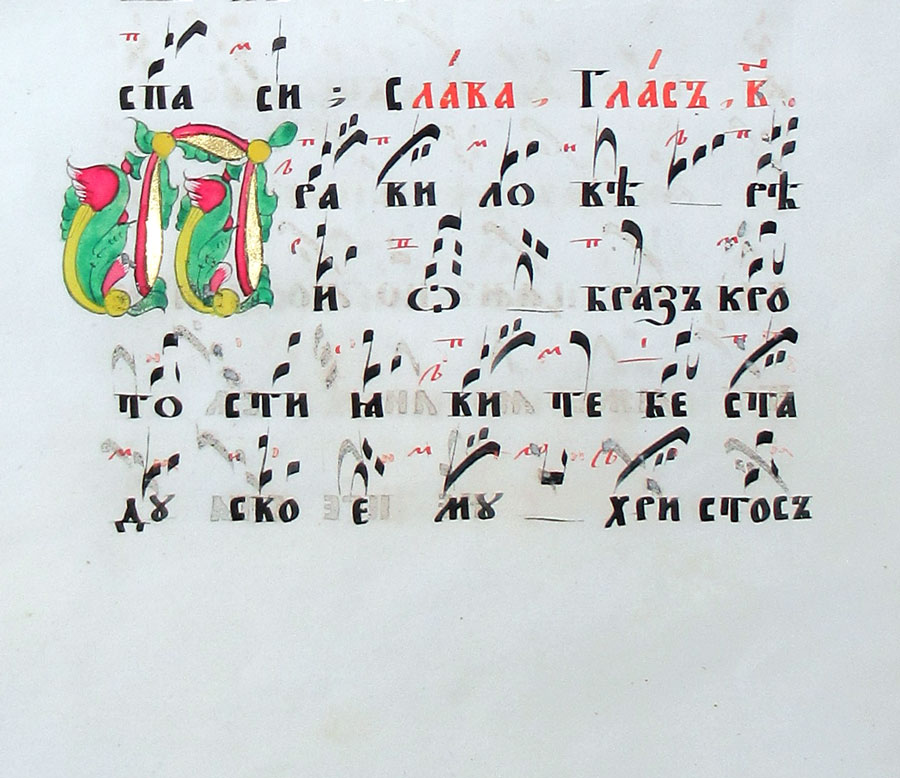 спа си : Слава , Гласъ , в҃ .
Пра ви ло вѣ рѣ
и ѡ бразъ кро
то сти ꙗ ви те бе ста
дꙋ ско е мꙋ хри стосъ